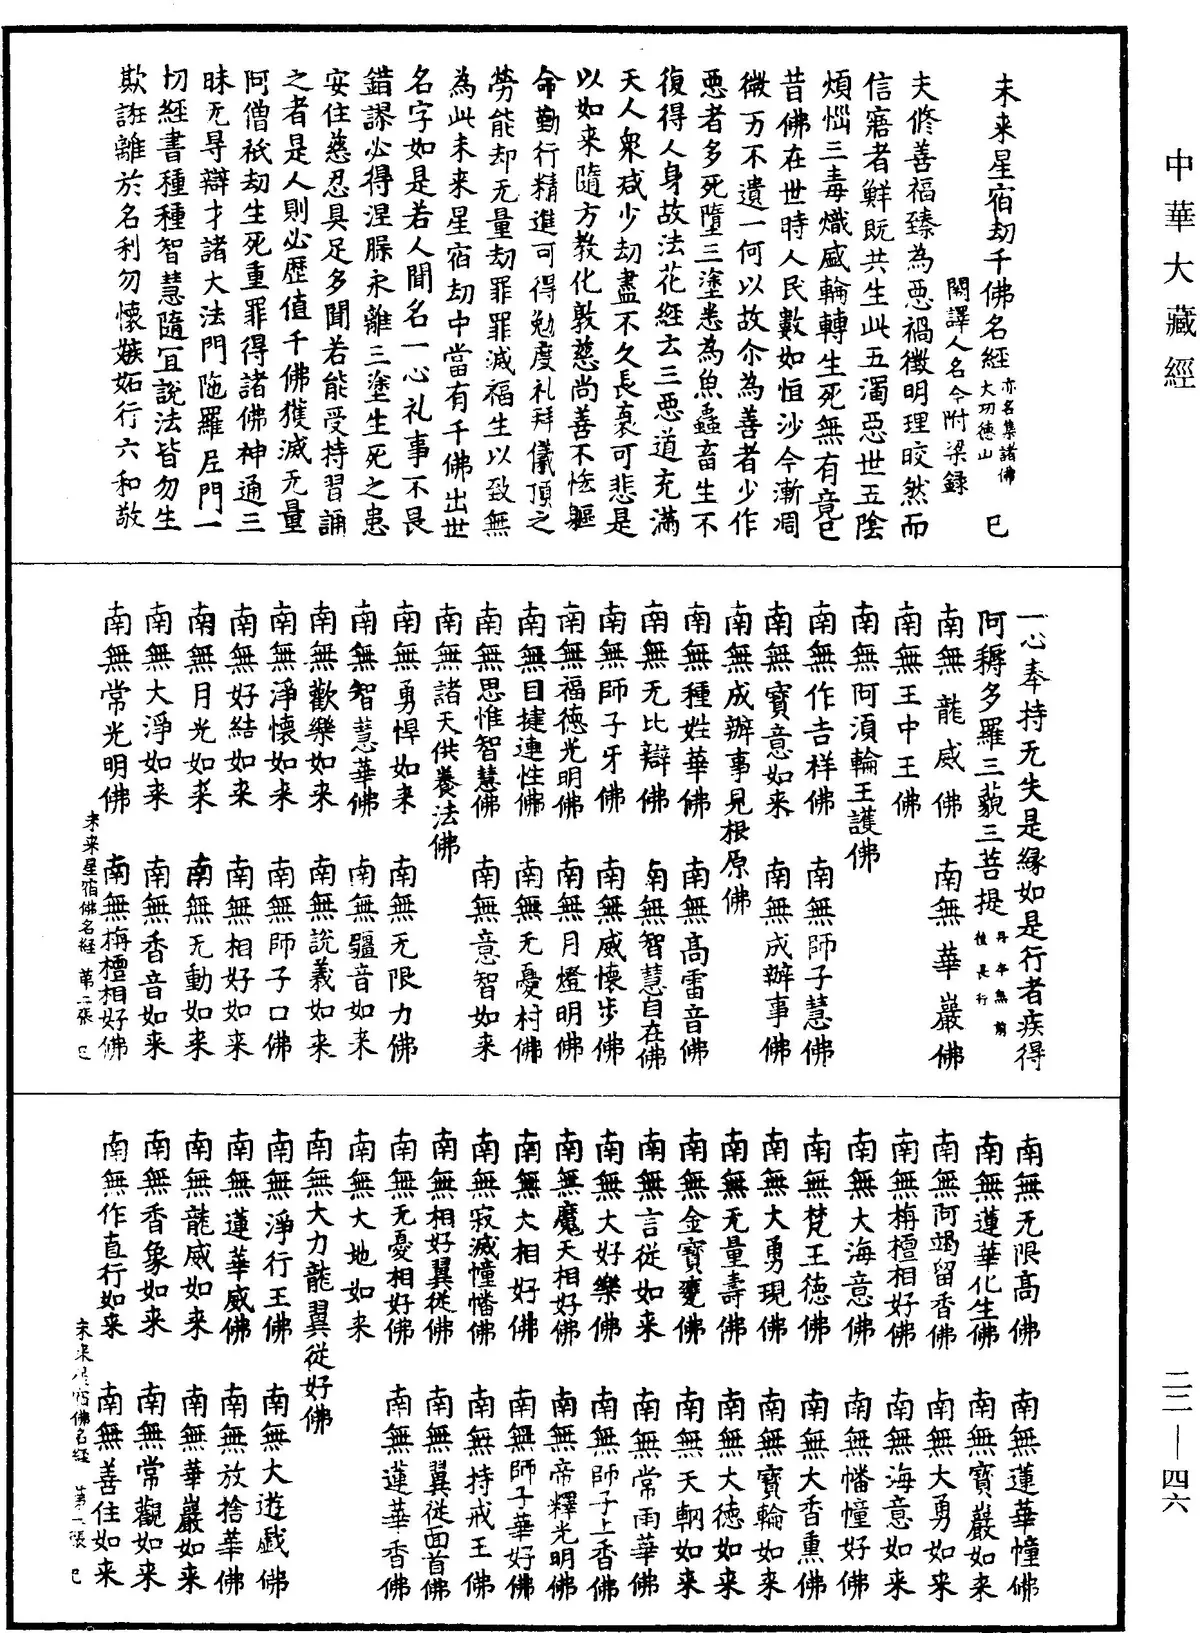 中華大藏經
未来星宿劫千佛名經 亦名集諸佛大功德山 巳
闕譯人名今附梁録
夫修善福臻為惡禍徵明理皎然而
信寤者鮮既共生此五濁惡世五陰
煩惱三毒熾盛輪轉生死無有竟已
昔佛在世時人民數如恒沙今漸凋
微万不遺一何以故尒為善者少作
惡者多死墮三塗悉為魚蟲畜生不
復得人身故法花經云三惡道充滿
天人衆減少劫盡不久長衰可悲是
以如来隨方教化敦慈尚善不悋軀
命勤行精進可得勉度礼拜儀頂之
勞能却无量劫罪罪滅福生以致無
為此未来星宿劫中當有千佛出世
名字如是若人聞名一心礼事不畏
錯謬必得涅縣永離三塗生死之患
安住慈忍具足多聞若能受持習誦
之者是人則必歷值千佛獲滅无量
阿僧祇劫生死重罪得諸佛神通三
昧无㝵辯才諸大法門陁羅尼門一
切經書種種智慧隨宜說法皆勿生
欺誑離於名利勿懷嫉妬行六和敬
一心奉持无失是緣如是行者疾得
阿耨多羅三藐三菩提 丹本無前植長行
南無龍威佛 南無華嚴佛
南無王中王佛
南無阿湏輪王護佛
南無作吉祥佛 南無師子慧佛
南無寶意如来 南無成辦事佛
南無成辦事見根原佛
南無種姓華佛 南無髙雷音佛
南無无比辯佛 南無智慧自在佛
南無師子牙佛 南無威懷步佛
南無福德光明佛 南無月燈明佛
南無目揵連性佛 南無无憂村佛
南無思惟智慧佛 南無意智如来
南無諸天供養法佛
南無勇悍如来 南無无限力佛
南無智慧華佛 南無彊音如来
南無歡樂如来 南無說義如来
南無淨懷如来 南無師子口佛
南無好結如来 南無相好如来
南無月光如来 南無无動如来
南無大淨如来 南無香音如来
南無常光明佛 南無栴檀相好佛
未来星宿佛名經 第二張 巳
南無无限髙佛 南無蓮華幢佛
南無蓮華化生佛 南無寶嚴如来
南無阿竭留香佛 南無大勇如来
南無栴檀相好佛 南無海意如来
南無大海意佛 南無幡幢好佛
南無梵王德佛 南無大香熏佛
南無大勇現佛 南無寶輪如来
南無无量壽佛 南無大德如来
南無金寶甕佛 南無天輞如来
南無言從如来 南無常雨華佛
南無大好樂佛 南無師子上香佛
南無魔天相好佛 南無帝釋光明佛
南無大相好佛 南無師子華好佛
南無寂滅幢幡佛 南無持戒王佛
南無相好翼從佛 南無翼從面首佛
南無无憂相好佛 南無蓮華香佛
南無大地如来
南無大力龍翼從好佛
南無淨行王佛 南無大遊戲佛
南無蓮華威佛 南無放捨華佛
南無龍威如来 南無華嚴如来
南無香象如来 南無常觀如来
南無作直行如来 南無善住如来
未来星宿佛名經 第二張 巳
二二—四六